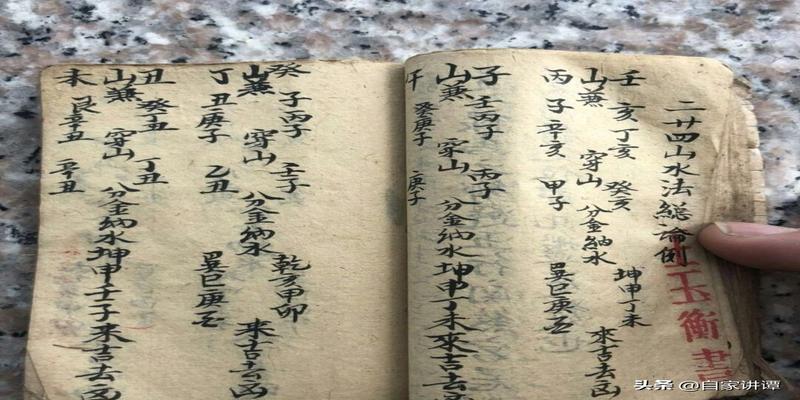 二廿四山水法総論例
玉衡書
壬 亥丁亥 癸亥 坤申丁未
山兼 穿山 分金納水 來吉去凶
丙 子辛亥 甲子 巽巳庚
子 壬丙子 丙子
山兼 穿山 分金納水坤申丁未來吉去凶
午 癸庚子 庚子
癸 子丙子 壬子 乾亥甲卯
山兼 穿山 分金納水 來吉去凶
丁 丑庚子 乙丑 巽巳庚
丑 癸丁丑 丁丑
山兼 穿山 分金納水坤申壬子來吉去凶
未 艮辛丑 辛丑
头条 @自家讲谭